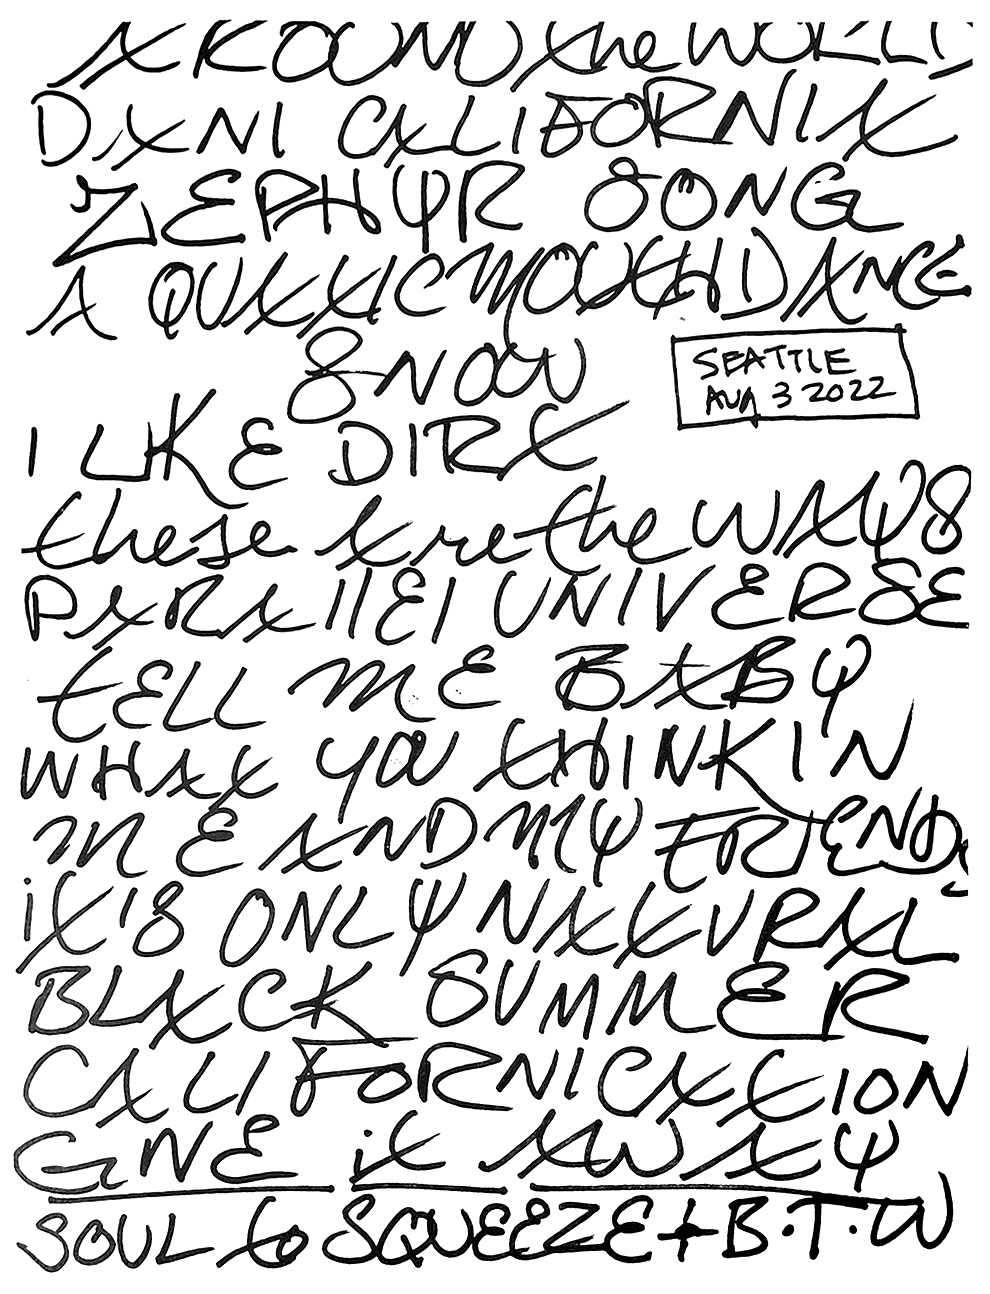 AROUND the WORLD
DANI CALIFORNIA
ZEPHYR SONG
A QUIXXIC MOUTH DANCE
SNOW
SEATTLE
AUG 3 2022
I LIKE DIRT
these are the WAYS
PARAllEl UNIVERSE
tELL ME BABY
WHAT YOU THINKIN
ME AND MY FRIENDS
iT'S ONLY NATURAL
BLACK SUMMER
CALIFORNICATION
GIVE iT AWAY
SOUL to SQUEEZE + B.T.W